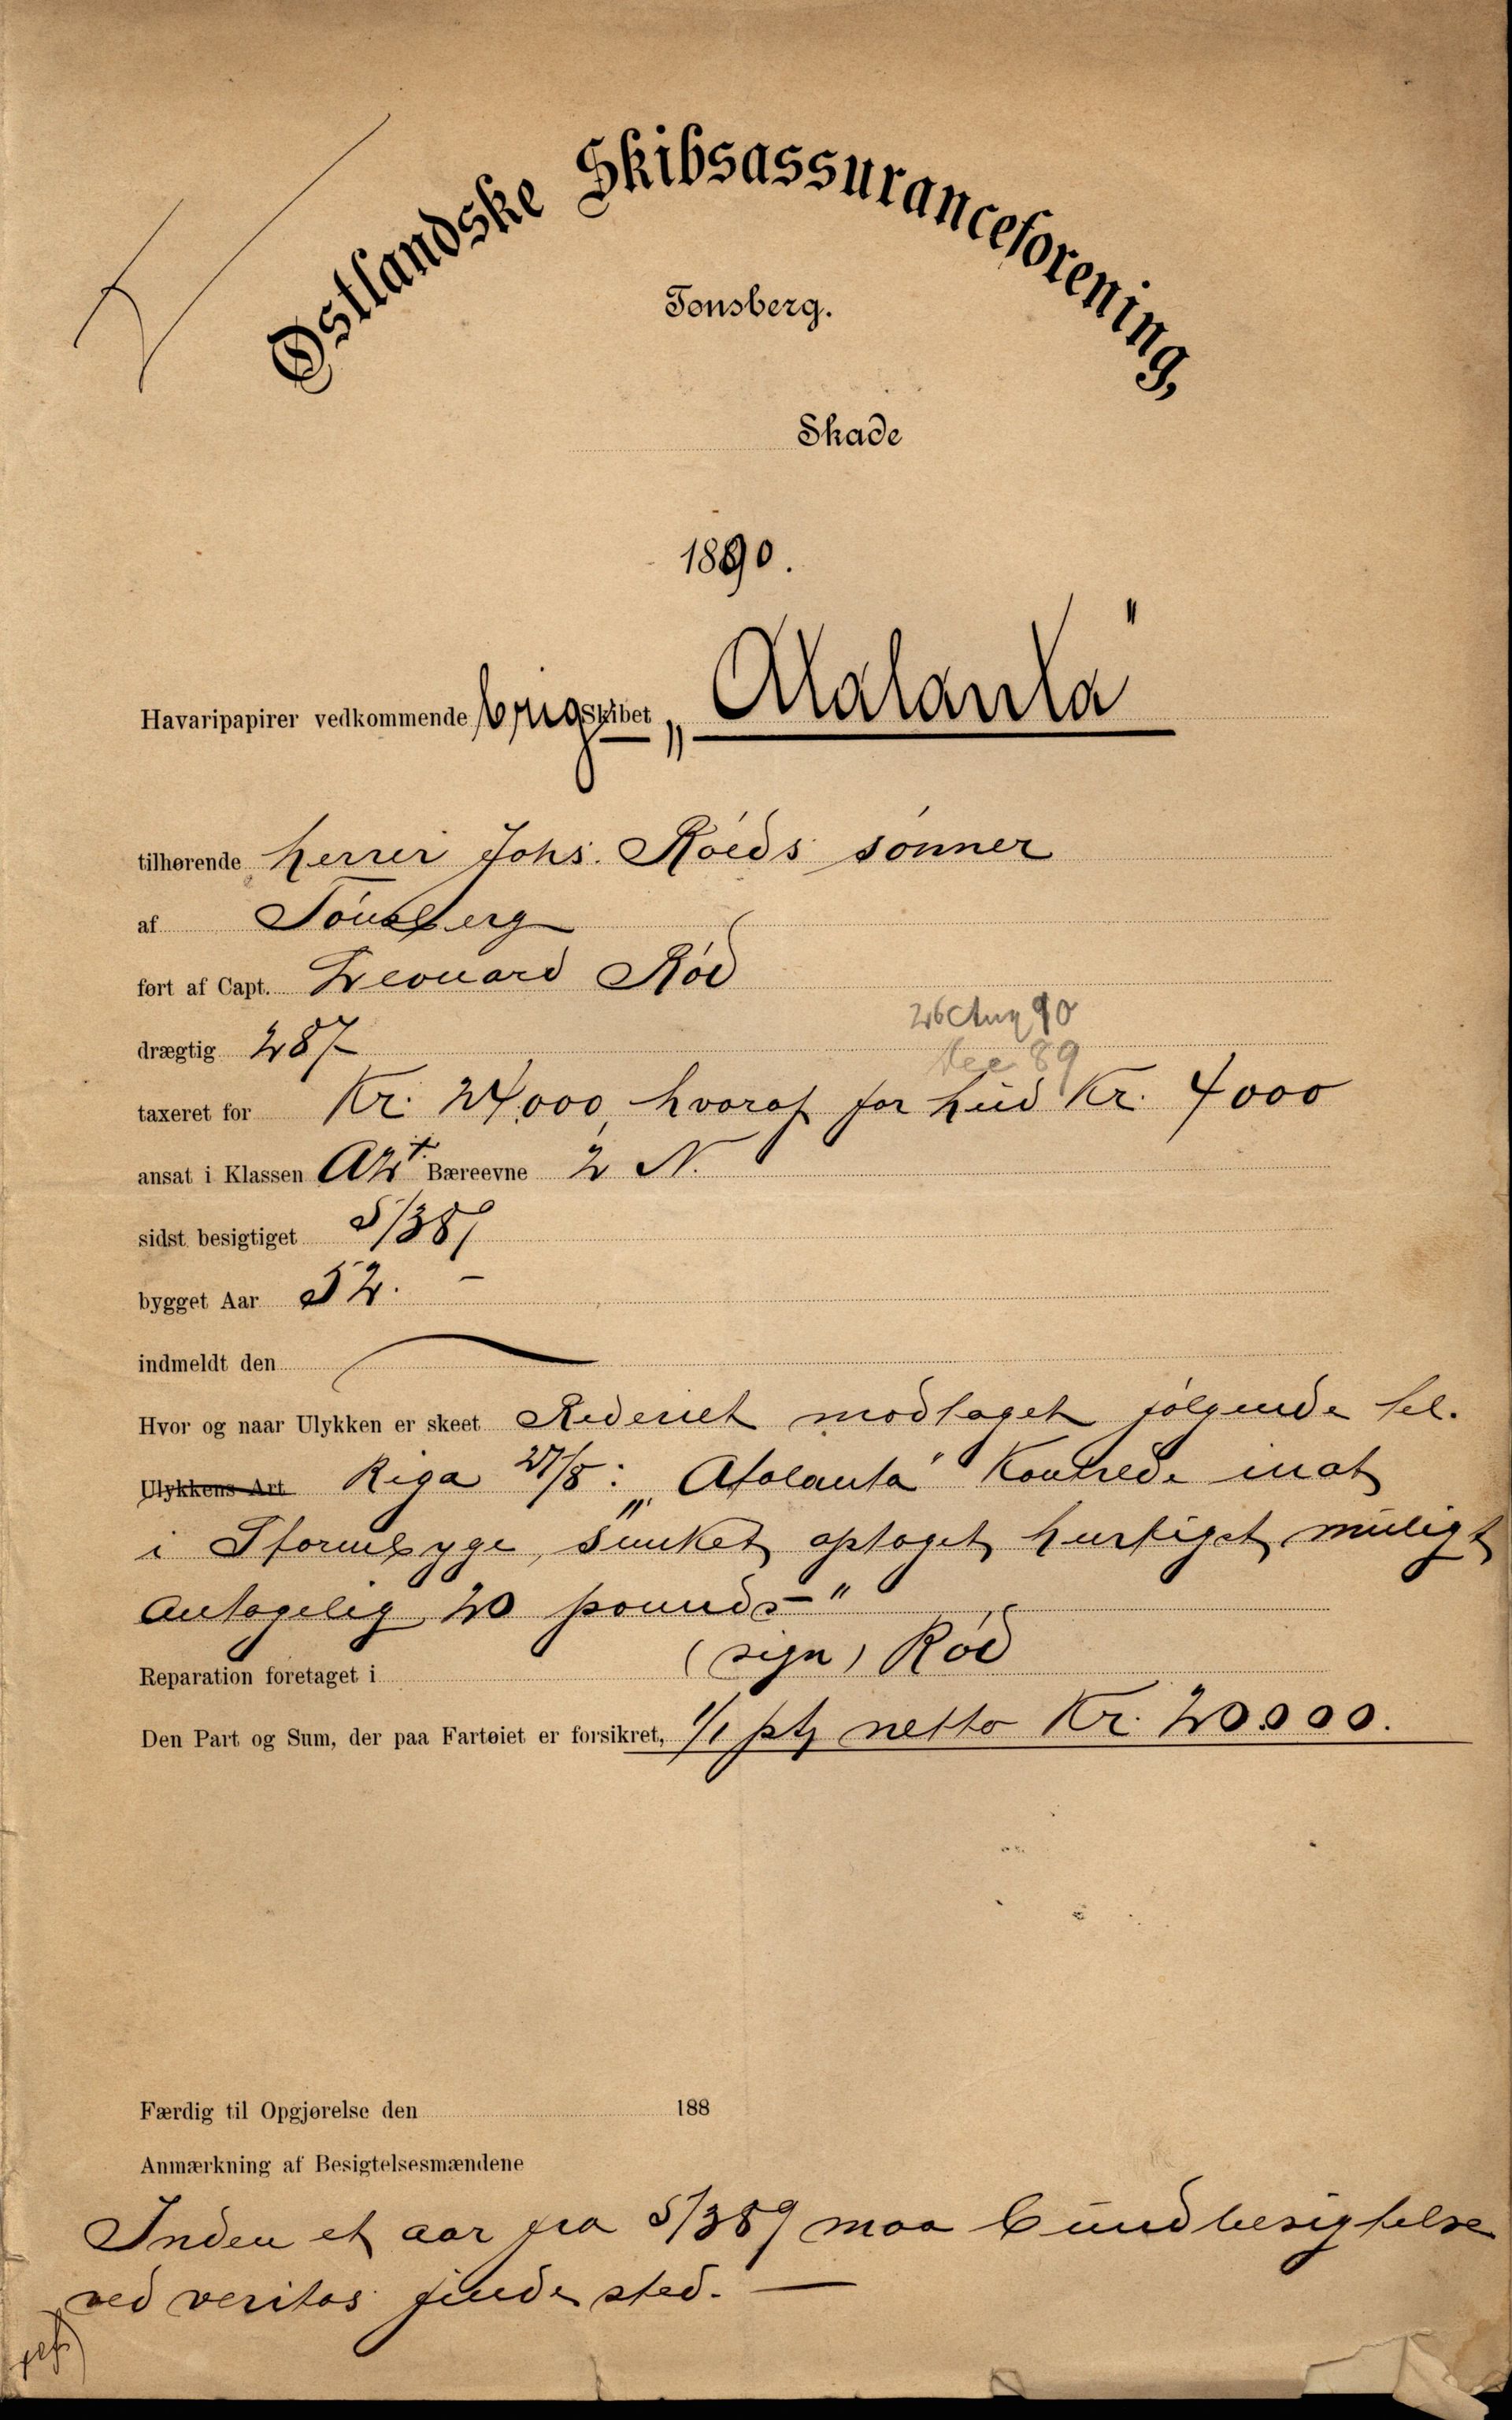 Østlandske Skibsassuranceforening,
Tonsberg.
Skade
1890.
Havaripapirer vedkommende brigSkibet „Atalanta"
tilhørende herrer Johs. Röeds sönner
af Tönsberg
ført af Capt. Leonard Röd
26 Aug 90
drægtig 287
Dec 89
taxeret for Kr. 24,000, hvoraf for hud Kr. 4000
ansat i Klassen A2+ Bæreevne 2 N.
sidst besigtiget 5/389
bygget Aar 52. –
indmeldt den
Hvor og naar Ulykken er skeet Rederiet modtaget følgende tel.
Ulykkens Art Riga 27/8: „Atalanta" Kantrede inat
i Stormbyge, sunket, optaget hurtigst muligt
antagelig 20 pounds –"
(sign) Röd
Reparation foretaget i
Den Part og Sum, der paa Fartøiet er forsikret, 1/1 pt, netto Kr. 20000.
Færdig til Opgjørelse den 188
Anmærkning af Besigtelsesmændene
Inden et aar fra 5/389 maa bundbesigtelse
ved veritas finde sted. —